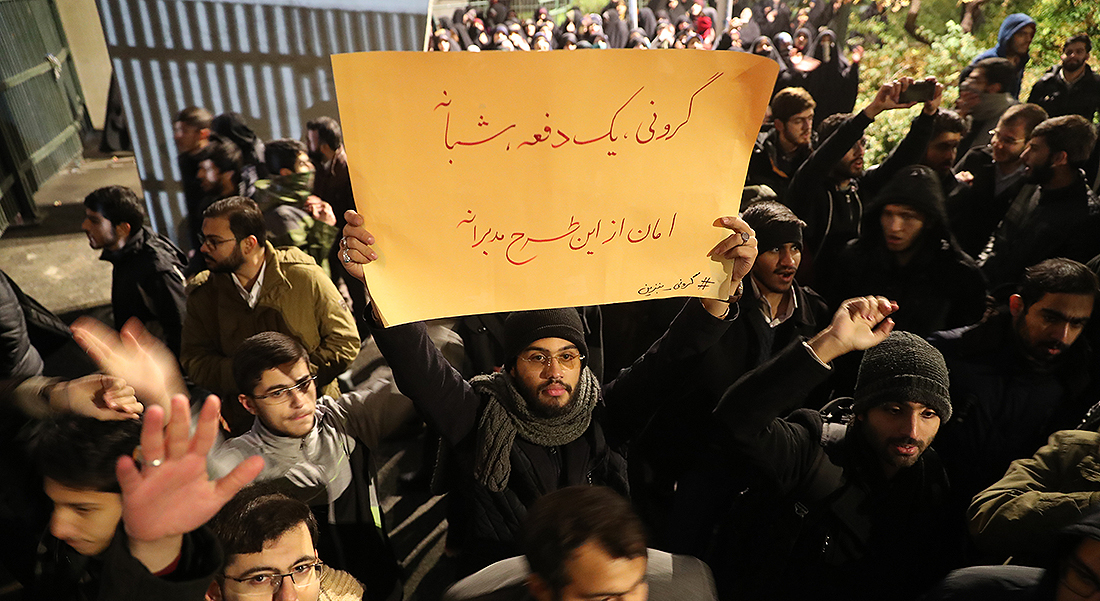 گرونی، یک دفعه، شبانه
امان از این طرح مدبرانه
#گرونی_بنزین